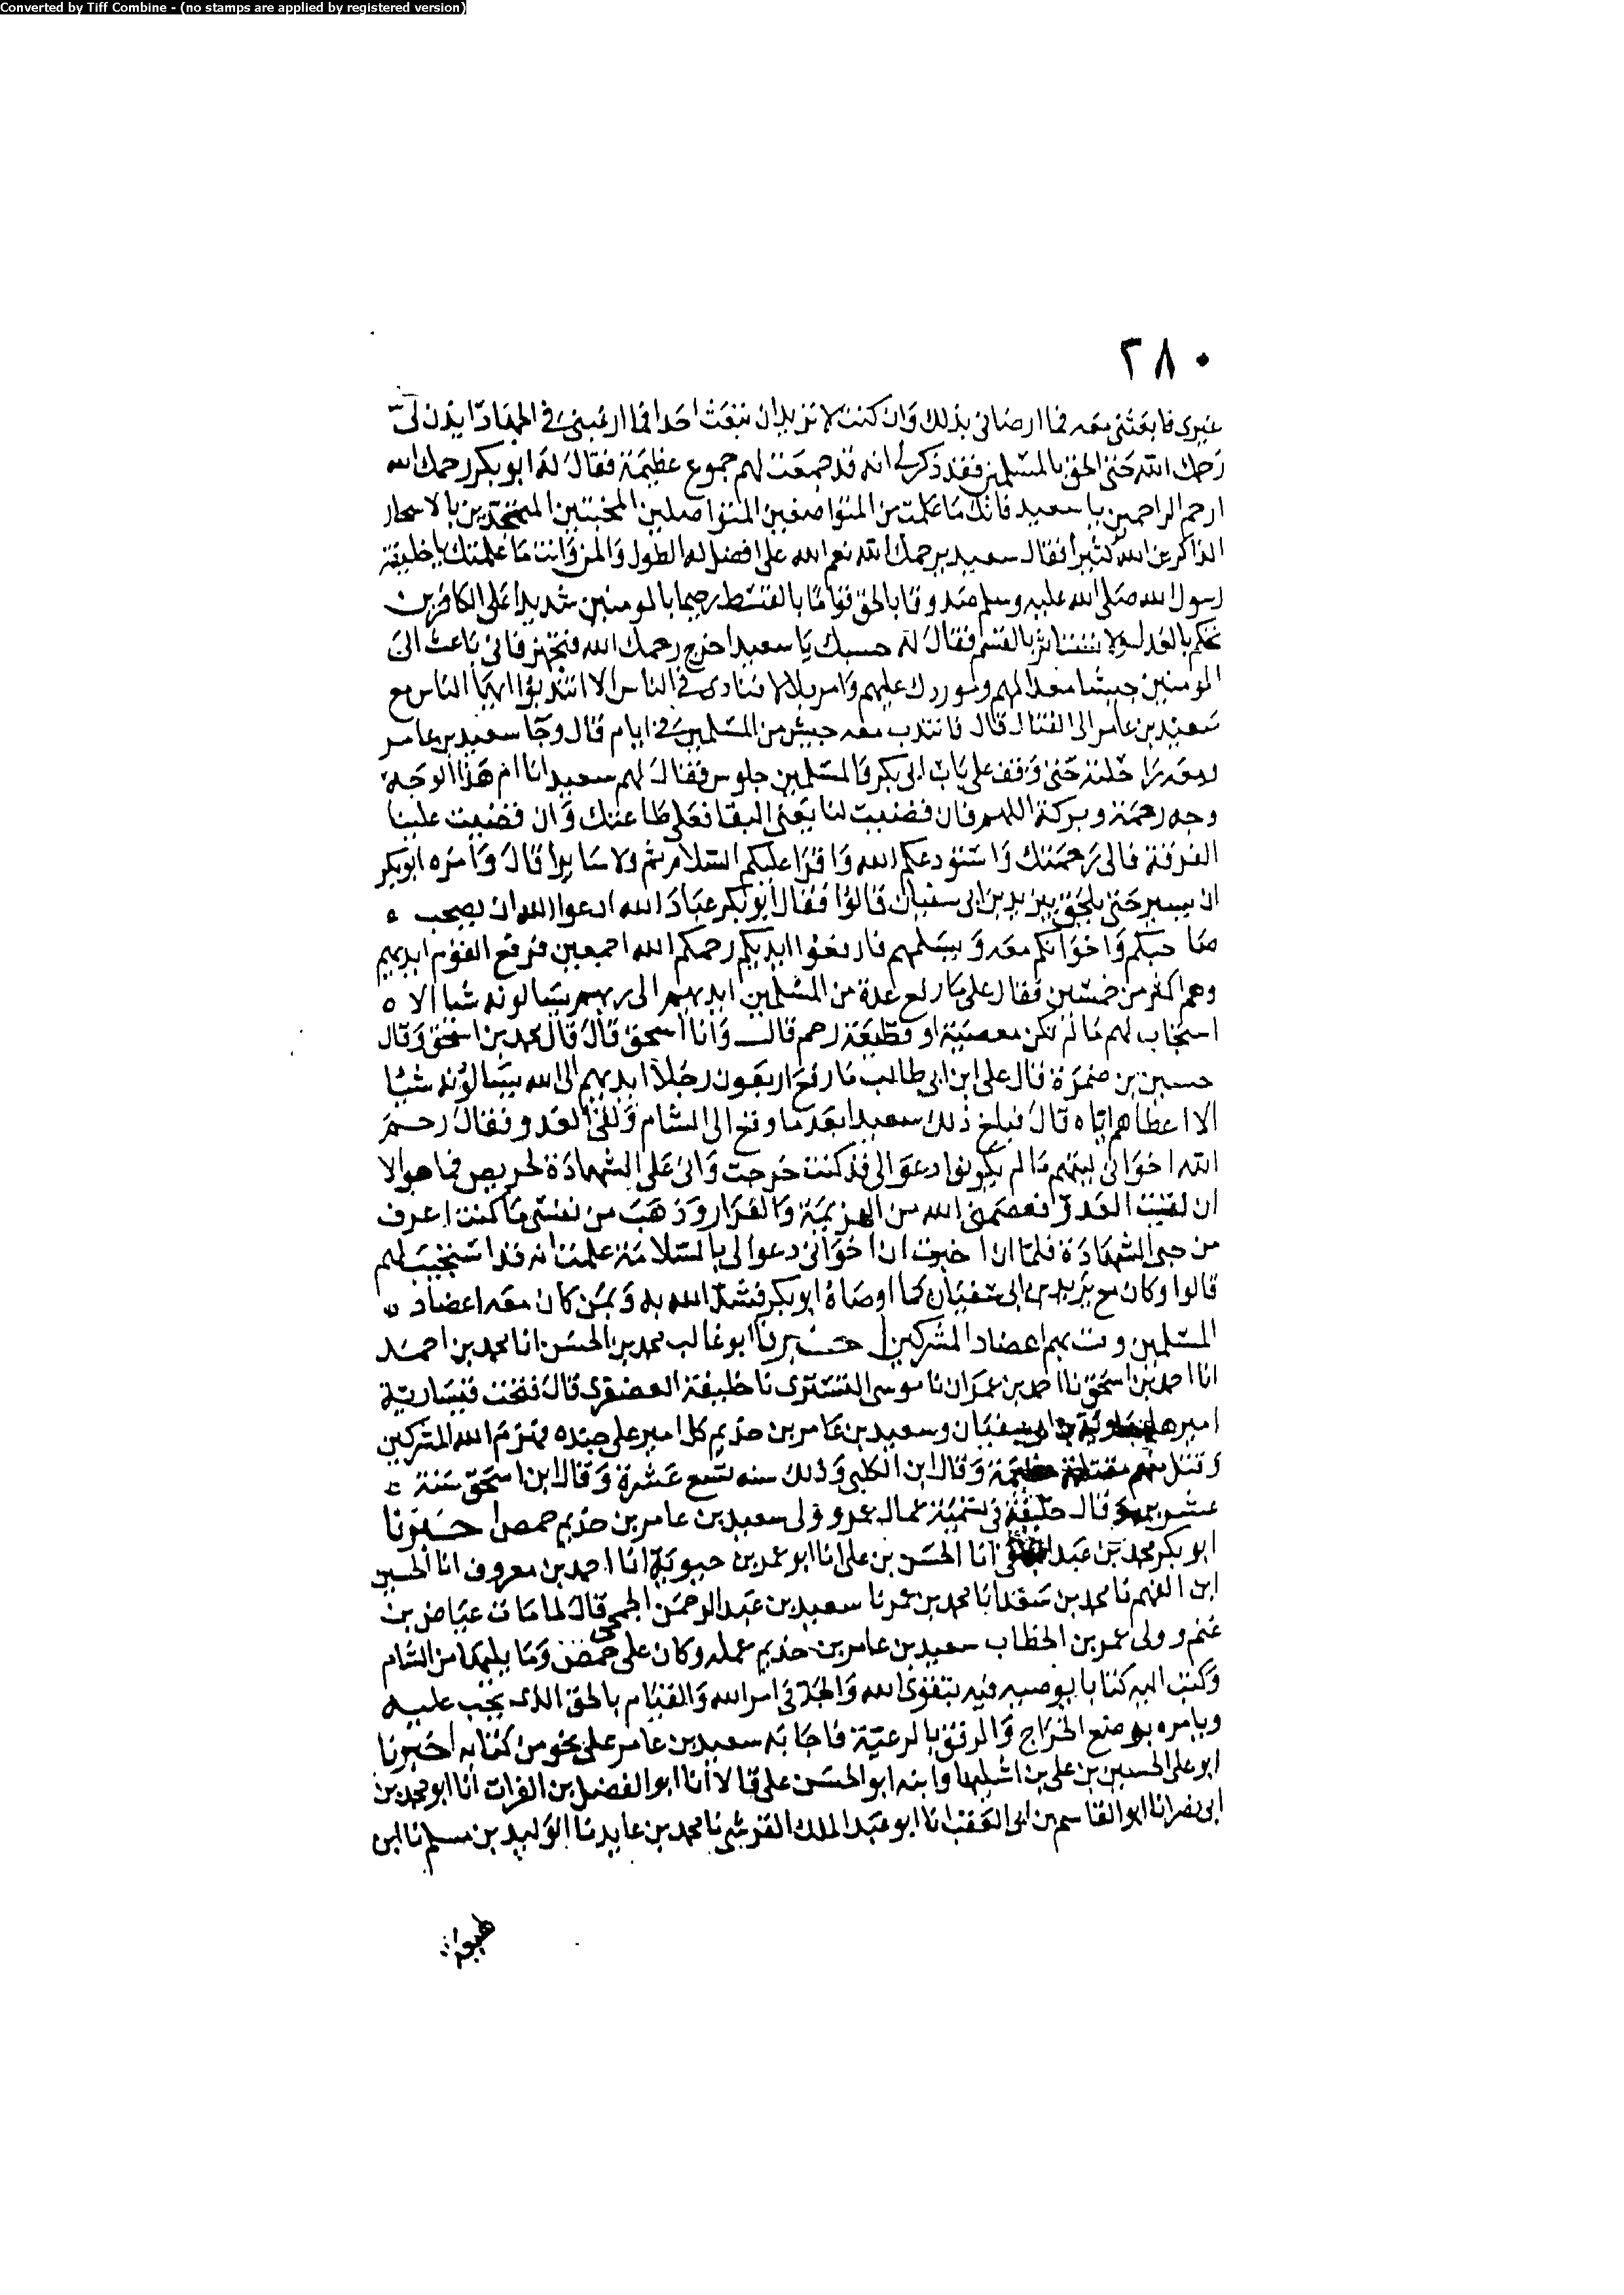 Converted by Tiff Combine - (no stamps are applied by registered version)
٢٨٠
غيرى فابعثنى معه فما ارضانى بذلك وان كنت لا تريد ان تبعث احدا فما ارغبنى فى الجهاد ايذن لى
رحمك الله حتى الحق بالمسلمين فقد ذكر لى انه قد جمعت لهم جموع عظيمة فقال له ابو بكر رحمك الله
ارحم الراحمين يا سعيد فانك ما علمت من المتواضعين المتواصلين المخبتين المتهجدين بالاسحار
الذاكرين الله كثيرا فقال سعيد يرحمك الله نعم الله على افضل له الطول والمن وانت ما علمتك يا خليفة
رسول الله صلى الله عليه وسلم صدوقا بالحق قواما بالقسط رحيما بالمومنين شديدا على الكافرين
تحكم بالعدل ولا تستاثر بالقسم فقال له حسبك يا سعيد اخرج رحمك الله فتجهز فانى باعث الى
المومنين جيشا ممدا لهم وموردك عليهم وامر بلالا فنادى فى الناس الا انتدبوا ايها الناس مع
سعيد بن عامر الى القتال قال فانتدب معه جيش من المسلمين فى ايام قال وجا سعيد بن عامر
ومعه راحلته حتى وقف على باب ابى بكر والمسلمين جلوس فقال لهم سعيد انا ام هذا الوجه
وجه رحمة وبركة اللهم فان قضيت لنا يعنى البقا فعلى طاعتك وان قضيت علينا
الفرقة فالى رحمتك واستودعكم الله واقرا عليكم السلام ثم ولا سايرا قال وامره ابو بكر
ان يسير حتى يلحق بيزيد بن ابى سفيان قالوا فقال ابو بكر عباد الله ادعوا الله ان يصحب
صاحبكم واخوانكم معه ويسلمهم فارفعوا ايديكم رحمكم الله اجمعين فرفع القوم ايديهم
وهم اكثر من خمسين فقال على ما رفع عدة من المسلمين ايديهم الى ربهم يسالونه شيا الا
استجاب لهم ما لم تكن معصية او قطيعة رحم قال وانا اسحق قال قال محمد بن اسحق وقال
حسين بن ضمرة قال على ابن ابى طالب ما رفع اربعون رجلا ايديهم الى الله يسالونه شيئا
الا اعطاهم اياه قال فبلغ ذلك سعيدا بعد ما وقع الى الشام ولقى العدو فقال رحم
الله اخوانى ليتهم ما لم يكونوا دعوا لى قد كنت خرجت وانى على الشهادة لحريص فما هو الا
ان لقيت العدو فعصمنى الله من الهزيمة والفرار وذهب من نفسى ما كنت اعرف
من حبى الشهادة فلما ان اخبرت ان اخوانى دعوا لى بالسلامة علمت انه قد استجيب لهم
قالوا وكان مع يزيد بن ابى سفيان كما اوصاه ابو بكر فشد الله به وبمن كان معه اعضاد
المسلمين وفت بهم اعضاد المشركين اخبرنا ابو غالب محمد بن الحسن انا محمد بن احمد
انا احمد بن اسحق نا احمد بن عمران نا موسى التسترى نا خليفة العصفرى قال فتحت قيسارية
اميرها معاوية بن ابى سفيان وسعيد بن عامر بن حذيم كل امير على جنده فهزم الله المشركين
وقتل منهم مقتلة عظيمة وقال ابن الكلبى وذلك سنه تسع عشرة وقال ابن اسحق سنة
عشرين وقال خليفة فى تسمية عمال عمر وولى سعيد بن عامر بن حذيم حمص اخبرنا
ابو بكر محمد بن عبد الباقى انا الحسن بن على انا ابو عمر بن حيوية انا احمد بن معروف انا الحسين
ابن الفهم نا محمد بن سعد انا محمد بن عمر نا سعيد بن عبد الرحمن الجمحى قال لما مات عياض بن
غنم وولى عمر بن الخطاب سعيد بن عامر بن حذيم عمله وكان على حمص وما يليها من الشام
وكتب اليه كتابا يوصيه فيه بتقوى الله والجد فى امر الله والقيام بالحق الذى يجب عليه
ويامره بوضع الخراج والرفق بالرعية فاجابه سعيد بن عامر على نحو من كتابه اخبرنا
ابو على الحسين بن على بن اشليها وابنه ابو الحسن على قالا انا ابو الفضل بن الفرات انا ابو محمد بن
ابى نصر انا ابو القاسم بن ابى العقب انا ابو عبد الملك القرشى نا محمد بن عايد نا الوليد بن مسلم نا ابن